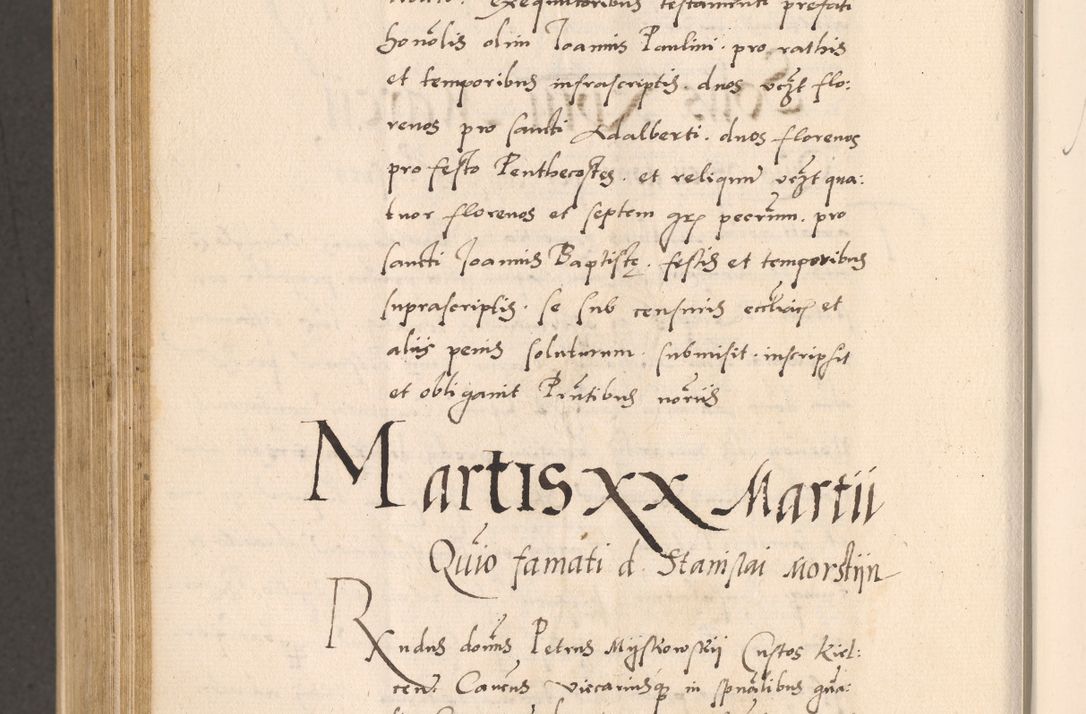 exequutoribus testamenti prefati
honolis olim Joannis Paulini. pro rathis
et temporibus infrascriptis. duos vczt flo:
renos pro sancti Adalberti. duos florenos
pro festo Penthecostes. et reliquum vczt qua:
tuor florenos et septem grs pecrum. pro
sancti Joannis Baptistę. festis et temporibus
suprascriptis. se sub censuris et
aliis penis soluturum. submisit. inscripsit
et obligauit Pntibus noriis
Martis xx Martii
Quio famati d. Stanislai Morstijn
Rxndus doms Petrus Mijskowskij Custos Kiel:
cen. Cancus Viccariusq in spualibus gna: